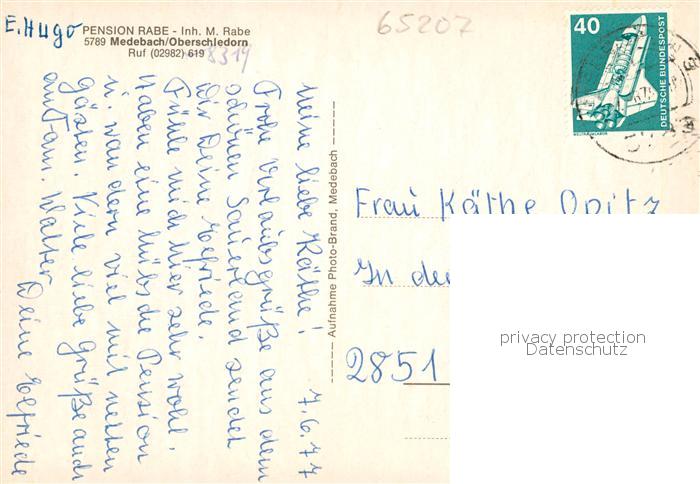 E. Hugo
PENSION RABE - Inh. M. Rabe
5789 Medebach/Oberschledorn
Ruf (02982) 619
8319
65207
40
DEUTSCHE BUNDESPOST
WELTRAUMLABOR
7.6.77
Meine liebe Käthe!
Frohe Urlaubsgrüße aus dem
schönen Sauerland sendet
Dir Deine Elfriede.
Fühle mich hier sehr wohl.
Haben eine hübsche Pension
u. wandern viel mit netten
Gästen. Viele liebe Grüße auch
an Fam. Walter
Deine Elfriede
Aufnahme Photo-Brand, Medebach
Frau Käthe Opitz
In der
2851
privacy protection
Datenschutz